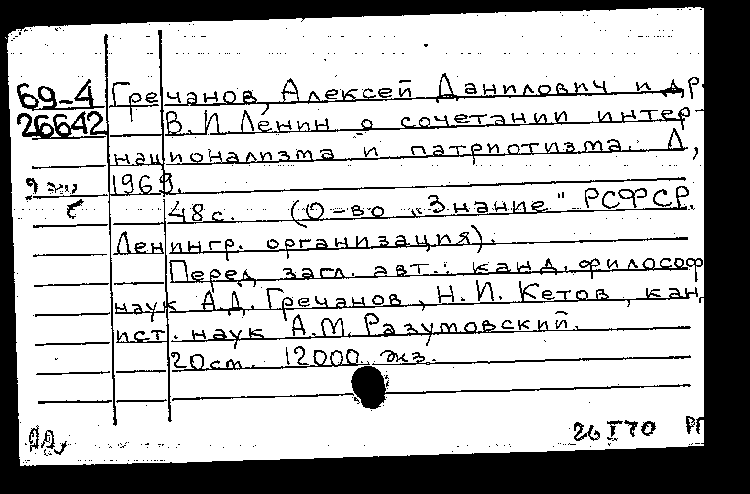 69-4 Гречанов, Алексей Данилович и др.
26642 В. И. Ленин о сочетании интер-
национализма и патриотизма. Л,
1969.
48 с. (О-во "Знание" РСФСР.
Ленингр. организация).
Перед загл. авт.: канд. философ
наук А.Д. Гречанов, Н.И. Кетов, кан.
ист. наук А.М. Разумовский.
20 см. 12000 экз.
26 I 70 РП